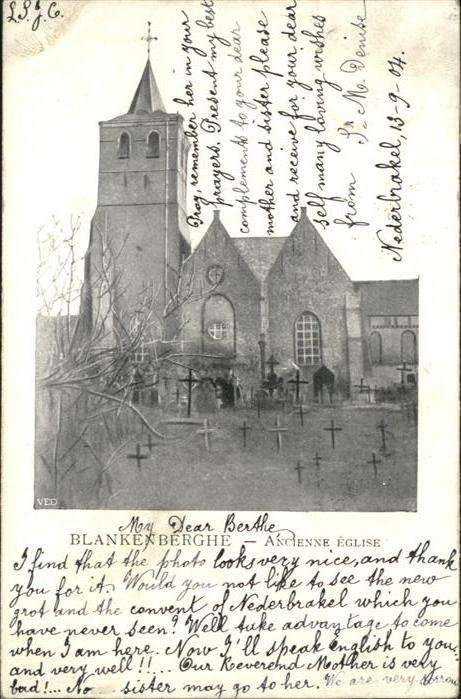 L.S.J.C.
My Dear Berthe
BLANKENBERGHE — ANCIENNE ÉGLISE
I find that the photo looks very nice, and thank
you for it. Would you not like to see the new
grot and the convent of Nederbrakel which you
have never seen? Well take advantage to come
when I am here. Now I'll speak english to you
and very well!!... Our Reverend Mother is very
bad!... No... sister may go to her. We are very
Pray, remember her in your
prayers. Present my best
complements to your dear
mother and sister please
and receive for your dear
self many loving wishes
from Sr. M. Denise
Nederbrakel, 13-9-04.
VED